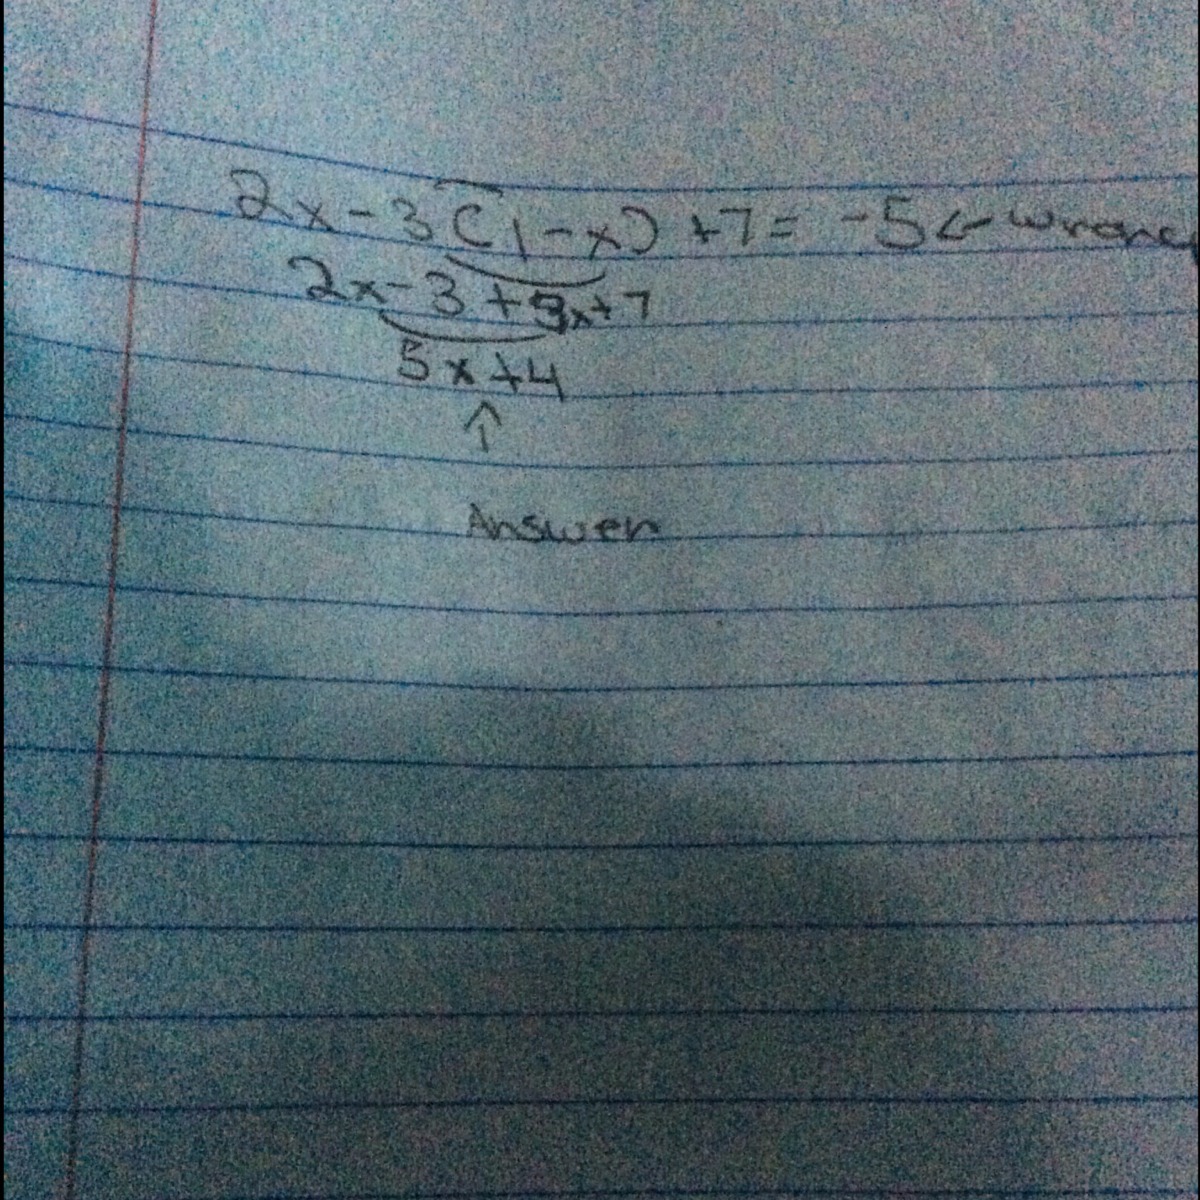 2x-3(1-x)+7= -5← wrong
2x-3+3x+7
5x+4
↑
Answer